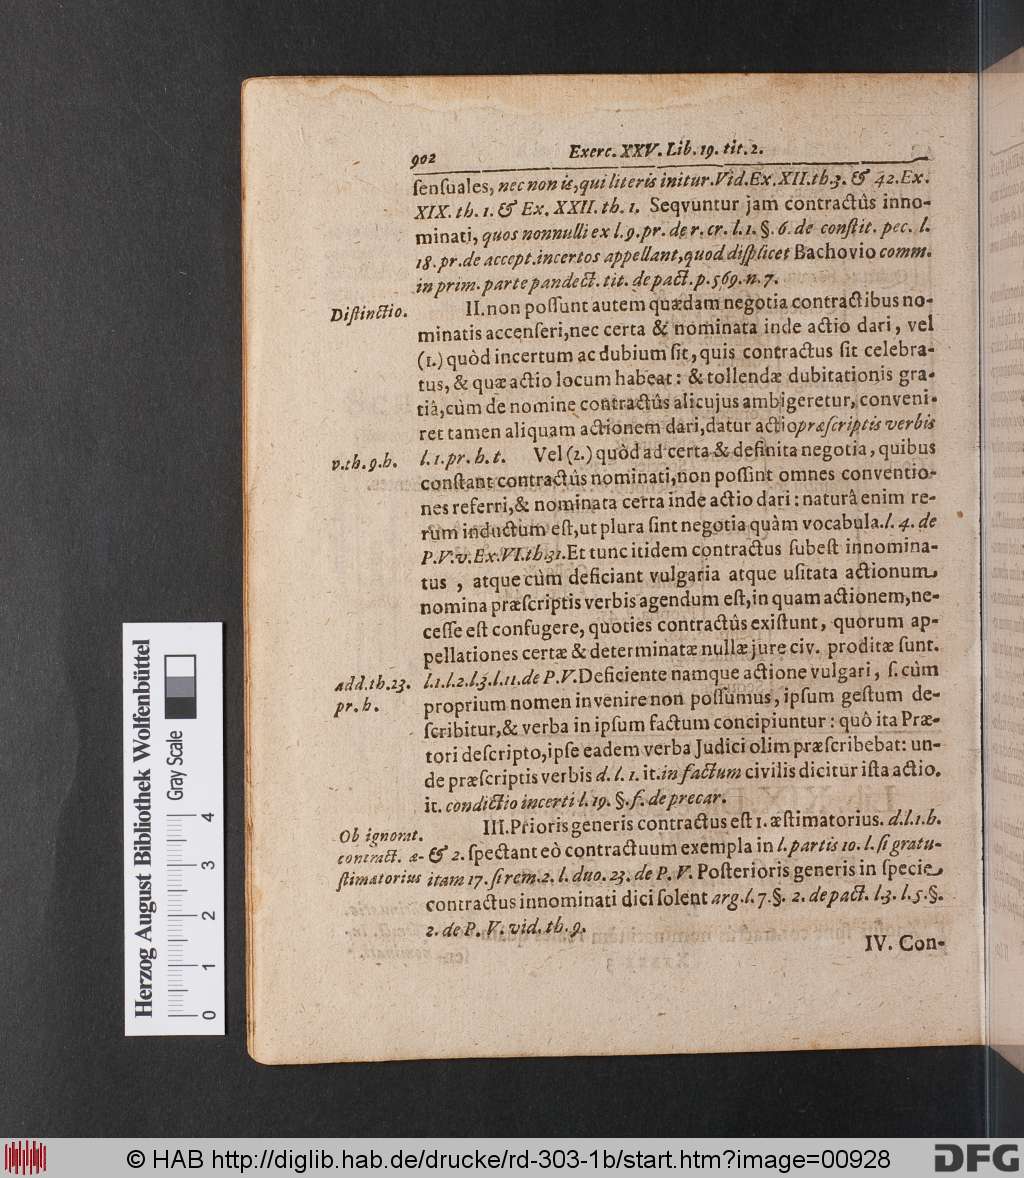 902 Exerc. XXV. Lib. 19. tit. 2.
ſenſuales, nec non is, qui literis initur. Vid. Ex. XII. th. 3. & 42. Ex.
XIX. th. 1. & Ex. XXII. th. 1. Seqvuntur jam contractûs inno-
minati, quos nonnulli ex l. 9. pr. de r. cr. l. 1. §. 6. de conſtit. pec. l.
18. pr. de accept. incertos appellant, quod diſplicet Bachovio comm.
in prim. parte pandect. tit. de pact. p. 569. n. 7.
Diſtinctio.
II. non poſſunt autem quædam negotia contractibus no-
minatis accenſeri, nec certa & nominata inde actio dari, vel
(1.) quòd incertum ac dubium ſit, quis contractus ſit celebra-
tus, & quæ actio locum habeat: & tollendæ dubitationis gra-
tiâ, cùm de nomine contractûs alicujus ambigeretur, conveni-
ret tamen aliquam actionem dari, datur actio præſcriptis verbis
v. th. 9. h.
l. 1. pr. h. t. Vel (2.) quòd ad certa & definita negotia, quibus
conſtant contractûs nominati, non poſſint omnes conventio-
nes referri, & nominata certa inde actio dari: naturâ enim re-
rum inductum eſt, ut plura ſint negotia quàm vocabula. l. 4. de
P. V. v. Ex. VI. th. 31. Et tunc itidem contractus ſubeſt innomina-
tus, atque cùm deficiant vulgaria atque uſitata actionum
nomina præſcriptis verbis agendum eſt, in quam actionem, ne-
ceſſe eſt confugere, quoties contractûs exiſtunt, quorum ap-
pellationes certæ & determinatæ nullæ jure civ. proditæ ſunt.
add. th. 23.
pr. h.
l. 1. l. 2. l. 3. l. 11. de P. V. Deficiente namque actione vulgari, ſ. cùm
proprium nomen invenire non poſſumus, ipſum geſtum de-
ſcribitur, & verba in ipſum factum concipiuntur: quô ita Præ-
tori deſcripto, ipſe eadem verba Judici olim præſcribebat: un-
de præſcriptis verbis d. l. 1. it. in factum civilis dicitur iſta actio.
it. condictio incerti l. 19. §. f. de precar.
Ob ignorat.
contract. æ-
ſtimatorius
III. Prioris generis contractus eſt 1. æſtimatorius. d. l. 1. h.
& 2. ſpectant eò contractuum exempla in l. partis 10. l. ſi gratu-
itam 17. ſi rem. 2. l. duo. 23. de P. V. Poſterioris generis in ſpecie
contractus innominati dici ſolent arg. l. 7. §. 2. de pact. l. 3. l. 5. §.
2. de P. V. vid. th. 9.
IV. Con-
Herzog August Bibliothek Wolfenbüttel
Gray Scale
0 1 2 3 4
© HAB http://diglib.hab.de/drucke/rd-303-1b/start.htm?image=00928
DFG